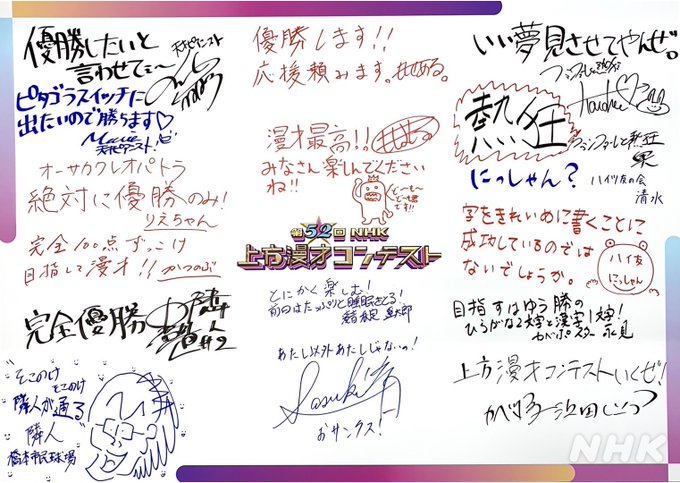 優勝したいと
言わせてぇ〜
天才ピアニスト
ピタゴラスイッチに
出たいので勝ちます♡
天才ピアニスト
オーサカクレオパトラ
絶対に優勝のみ!
りえちゃん
完全100点ずっこけ
目指して漫才!! かつのぶ
完全優勝
そこのけ
そこのけ
隣人が通る
隣人
橋本市民球場
優勝します!!
応援頼みます。
漫才最高!!
みなさん楽しんでください
ね!!
ど〜も〜
ど〜も
です!!
第52回 NHK
上方漫才コンテスト
とにかく楽しむ!
前日はたっぷりと睡眠をとる!
あたし以外あたしじゃないの!
Sasuke
おサンクス!
いい夢見させてやんぜ。
ファンファーレと熱狂
熱狂
ファンファーレと熱狂
にっしゃん?
ハイツ友の会
清水
字をきれいめに書くことに
成功しているのでは
ないでしょうか。
ハイ友
にっしゃん
目指すはゆう勝の
ひらがな2文字と漢字1文字!
カベポスター 永見
上方漫才コンテストいくぜ!
カベポスター 浜田
NHK